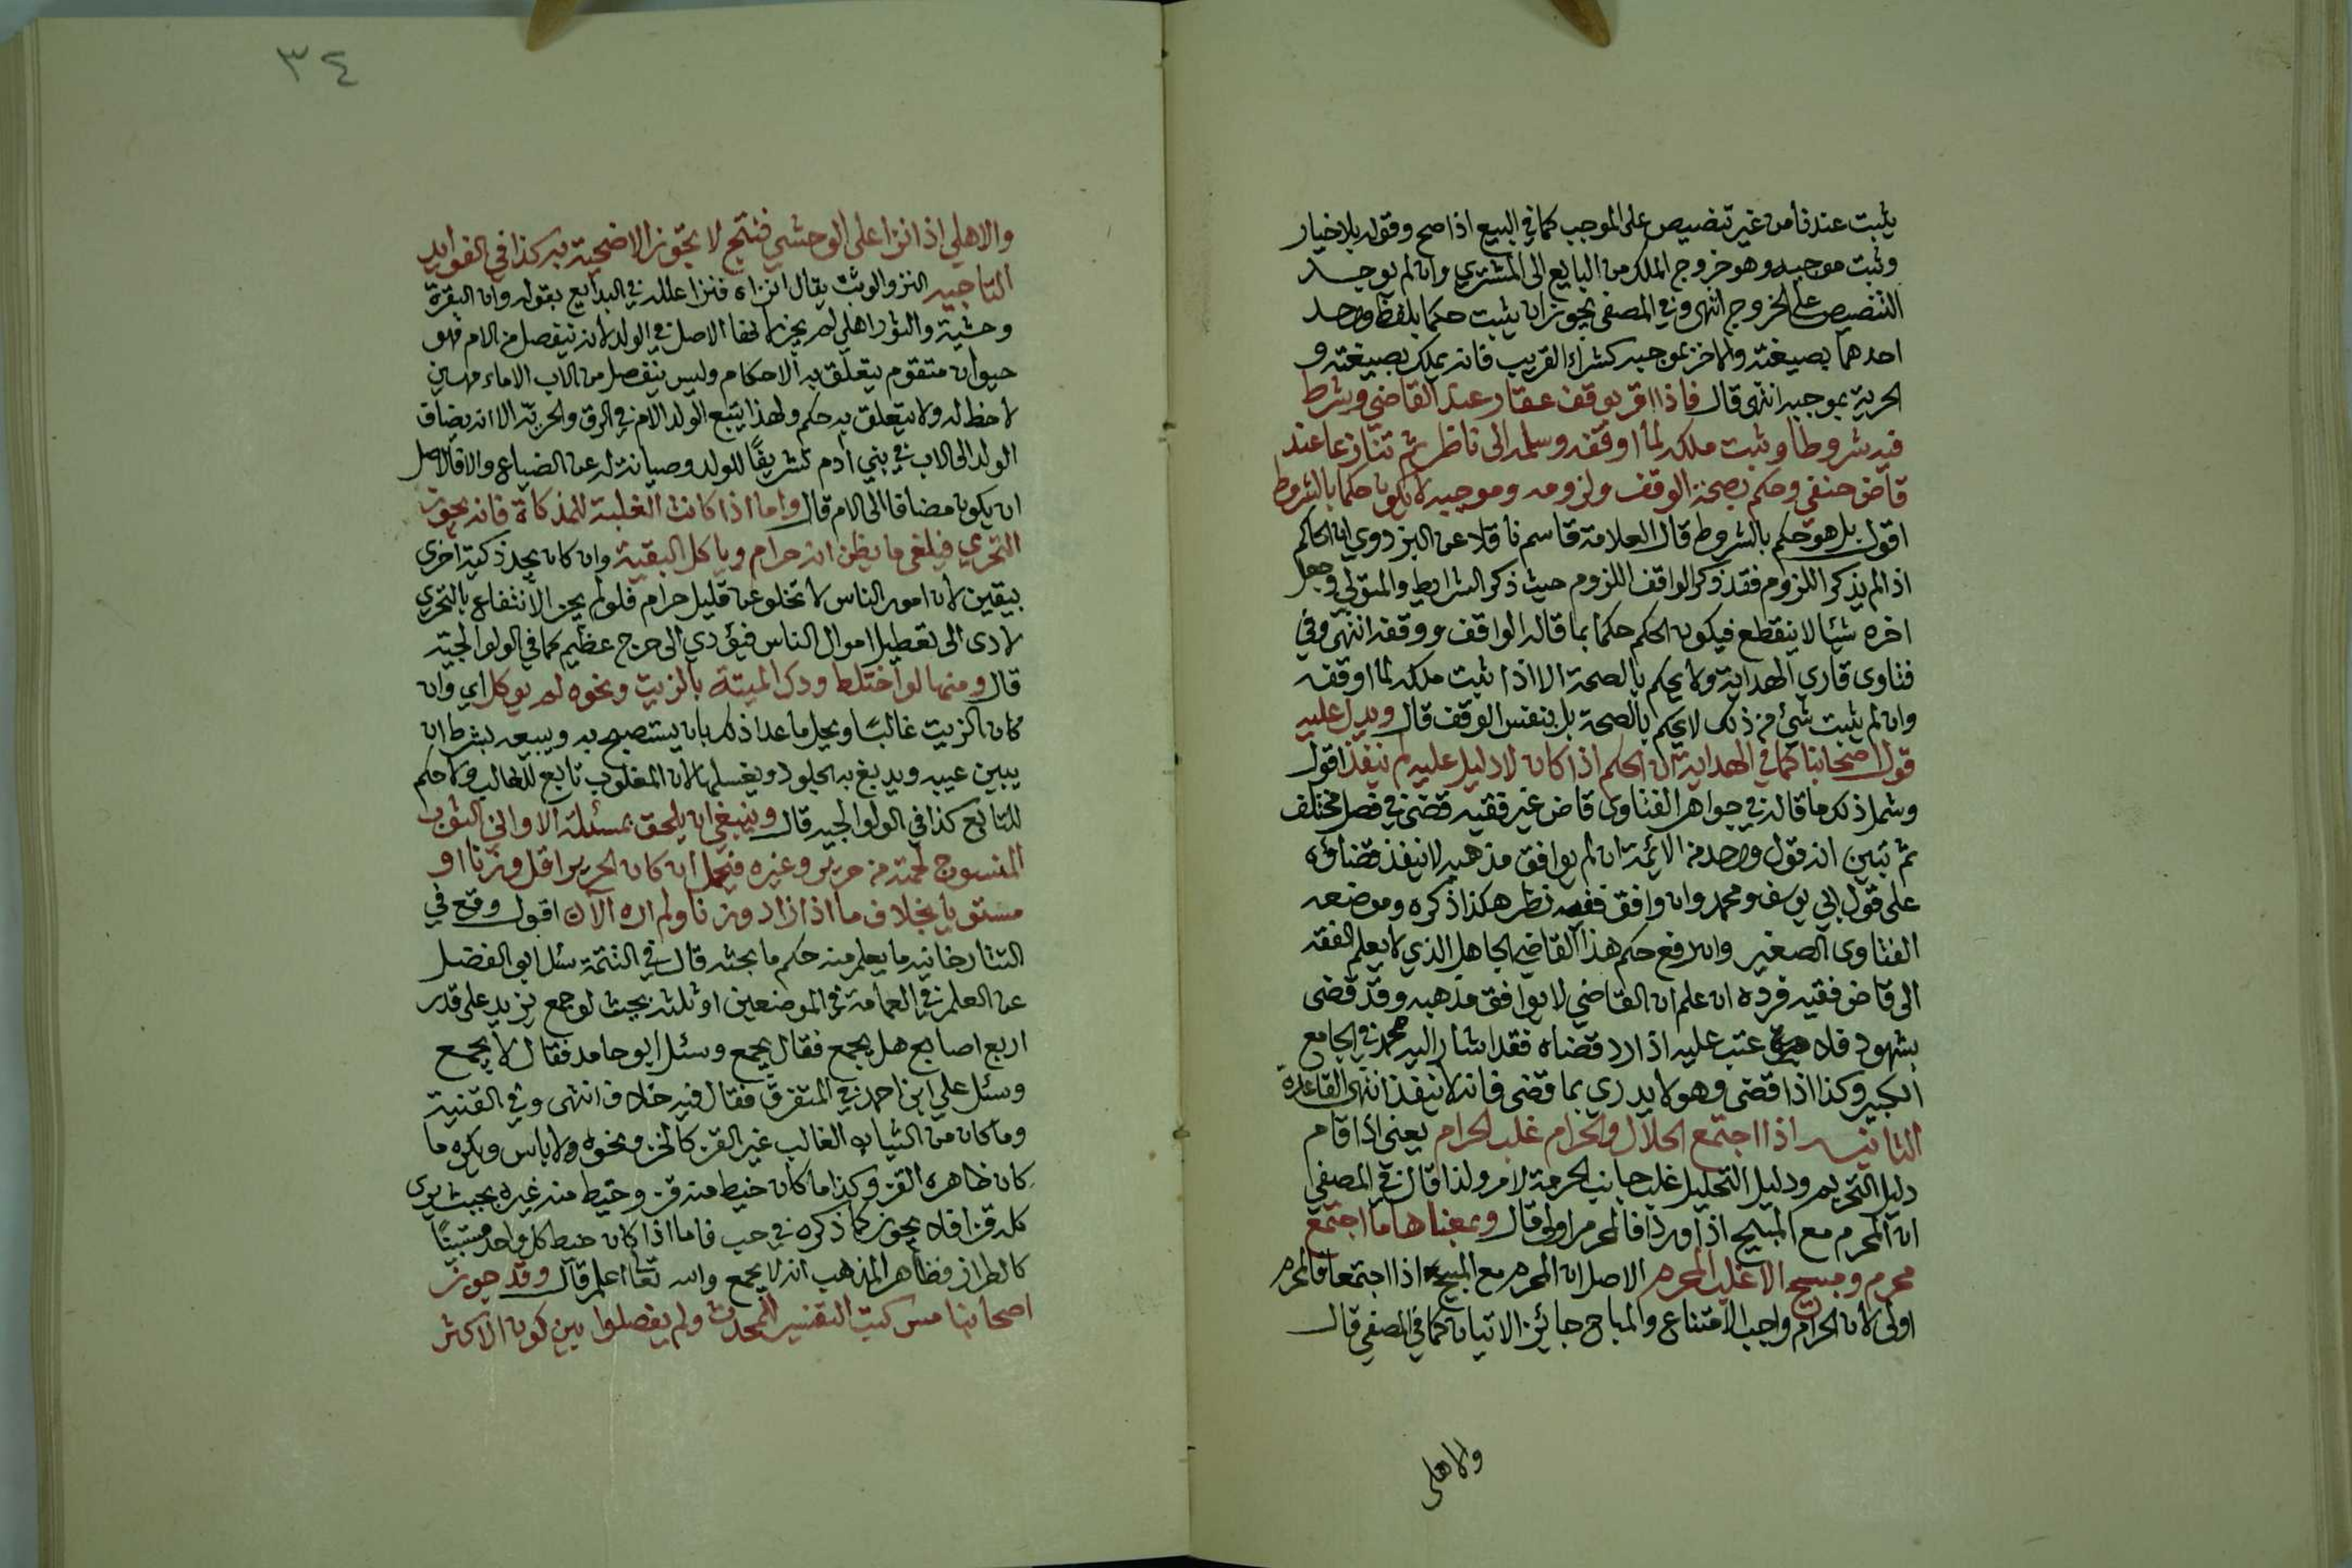 يثبت عندنا من غير تنصيص على الموجب كما في البيع اذا صح وقوله بلا خيار
وثبت موجبه وهو خروج الملك من البايع الى المشتري وان لم يوجد
التنصيص على الخروج انتهى وفي المصفى يجوز ان يثبت حكما بلفظ واحد
احدهما بصيغته والاخر بموجبه كشراء القريب فانه يملك بصيغته و
الحرية بموجبه انتهى قال فاذا اقر بوقف عقار عند القاضي وشرط
فيه شروطا وثبت ملكه لما اوقفه وسلمه الى ناظر ثم تنازعا عند
قاض حنفي وحكم بصحة الوقف ولزومه وموجبه لا يكون حكما بالشروط
اقول بل هو حكم بالشروط قال العلامة قاسم ناقلا عن البزدوي ان الحاكم
اذا لم يذكر اللزوم فقد ذكر الواقف اللزوم حيث ذكر الشرايط والمتولي وجعل
اخره شيئا لا ينقطع فيكون الحكم حكما بما قاله الواقف ووقفه انتهى وفي
فتاوى قاري الهداية ولا يحكم بالصحة الا اذا ثبت ملكه لما اوقفه
وان لم يثبت شيء من ذلك لا يحكم بالصحة بل بنفس الوقف قال ويدل عليه
قول اصحابنا كما في الهداية ان الحكم اذا كان لا دليل عليه لم ينفذ اقول
وشمل ذلك ما قاله في جواهر الفتاوى قاض غير فقيه قضى في فصل مختلف
ثم تبين انه قول واحد من الائمة ان لم يوافق مذهبه لا ينفذ قضاؤه
على قول ابي يوسف ومحمد وان وافق ففيه نظر هكذا ذكره وموضعه
الفتاوى الصغير وان رفع حكم هذا القاضي الجاهل الذي لا يعلم الفقه
الى قاض فقيه فرده ان علم ان القاضي لا يوافق مذهبه وقد قضى
بشهود فلا عتب عليه اذا رد قضاه فقد اشار اليه محمد في الجامع
الكبير وكذا اذا قضى وهو لا يدري بما قضى فانه لا ينفذ انتهى القاعدة
الثانية اذا اجتمع الحلال والحرام غلب الحرام يعني اذا قام
دليل التحريم ودليل التحليل غلب جانب الحرمة لامر ولذا قال في المصفى
ان المحرم مع المبيح اذا وردا فالمحرم اولى قال وبمعناها ما اجتمع
محرم ومبيح الا غلب المحرم الاصل ان المحرم مع المبيح اذا اجتمعا فالمحرم
اولى لان الحرام واجب الامتناع والمباح جائز الاتيان كما في المصفى قال
والاهلي
٣٤
والاهلي اذا نزا على الوحشي فنتج لا تجوز الاضحية به كذا في الفوايد
التاجيه النزو الوثب يقال انزاه فنزا علله في البدايع بقوله وان البقرة
وحشية والثور اهلي لم يجز لانها الاصل في الولد لانه ينفصل من الام فهو
حيوان متقوم يتعلق به الاحكام وليس ينفصل من الاب الا ماء مهين
لا خطر له ولا يتعلق به حكم ولهذا يتبع الولد الام في الرق والحرية الا انه يضاف
الولد الى الاب في بني ادم تشريفًا للولد وصيانة له عن الضياع والا فالاصل
ان يكون مضافا الى الام قال واما اذا كانت الغلبة للمذكاة فانه يجوز
التحري فيلغى ما يظن انه حرام وياكل البقية وان كان يجد ذكية اخرى
بيقين لان امور الناس لا تخلو عن قليل حرام فلو لم يجز الانتفاع بالتحري
لادى الى تعطيل اموال الناس فيؤدي الى حرج عظيم كما في الولوالجية
قال ومنها لو اختلط ودك الميتة بالزيت ونحوه لم يوكل اي وان
كان الزيت غالبًا ويحل ما عدا ذلك بان يستصبح به ويبيعه بشرط ان
يبين عيبه ويدبغ به الجلود ويغسلها لان المغلوب تابع للغالب ولا حكم
للتابع كذا في الولوالجيه قال وينبغي ان يلحق بمسئلة الاواني الثوب
المنسوج لحمته من حرير وغيره فيحل ان كان الحرير اقل وزنا او
مستويا بخلاف ما اذا زاد وزنا ولم اره الآن اقول وقع في
التتارخانيه ما يعلم منه حكم ما بحثه قال في التتمة سئل ابو الفضل
عن العلم في العمامة في الموضعين او ثلثه بحيث لو جمع يزيد على قدر
اربع اصابع هل يجمع فقال يجمع وسئل ابو حامد فقال لا يجمع
وسئل علي ابن احمد في المتفرق فقال فيه خلاف انتهى وفي القنية
وما كان من الثياب الغالب غير القز كالخز ونحوه ولا باس ويكره ما
كان ظاهره القز وكذا ما كان خيط منه قز وخيط منه غيره بحيث يرى
كله قزا فلا يجوز كما ذكره في حب فاما اذا كان خيط كل واحد مستبينًا
كالطراز فظاهر المذهب انه لا يجمع والله تعا اعلم قال وقد جوز
اصحابنا مس كتب التفسير للمحدث ولم يفصلوا بين كون الاكثر